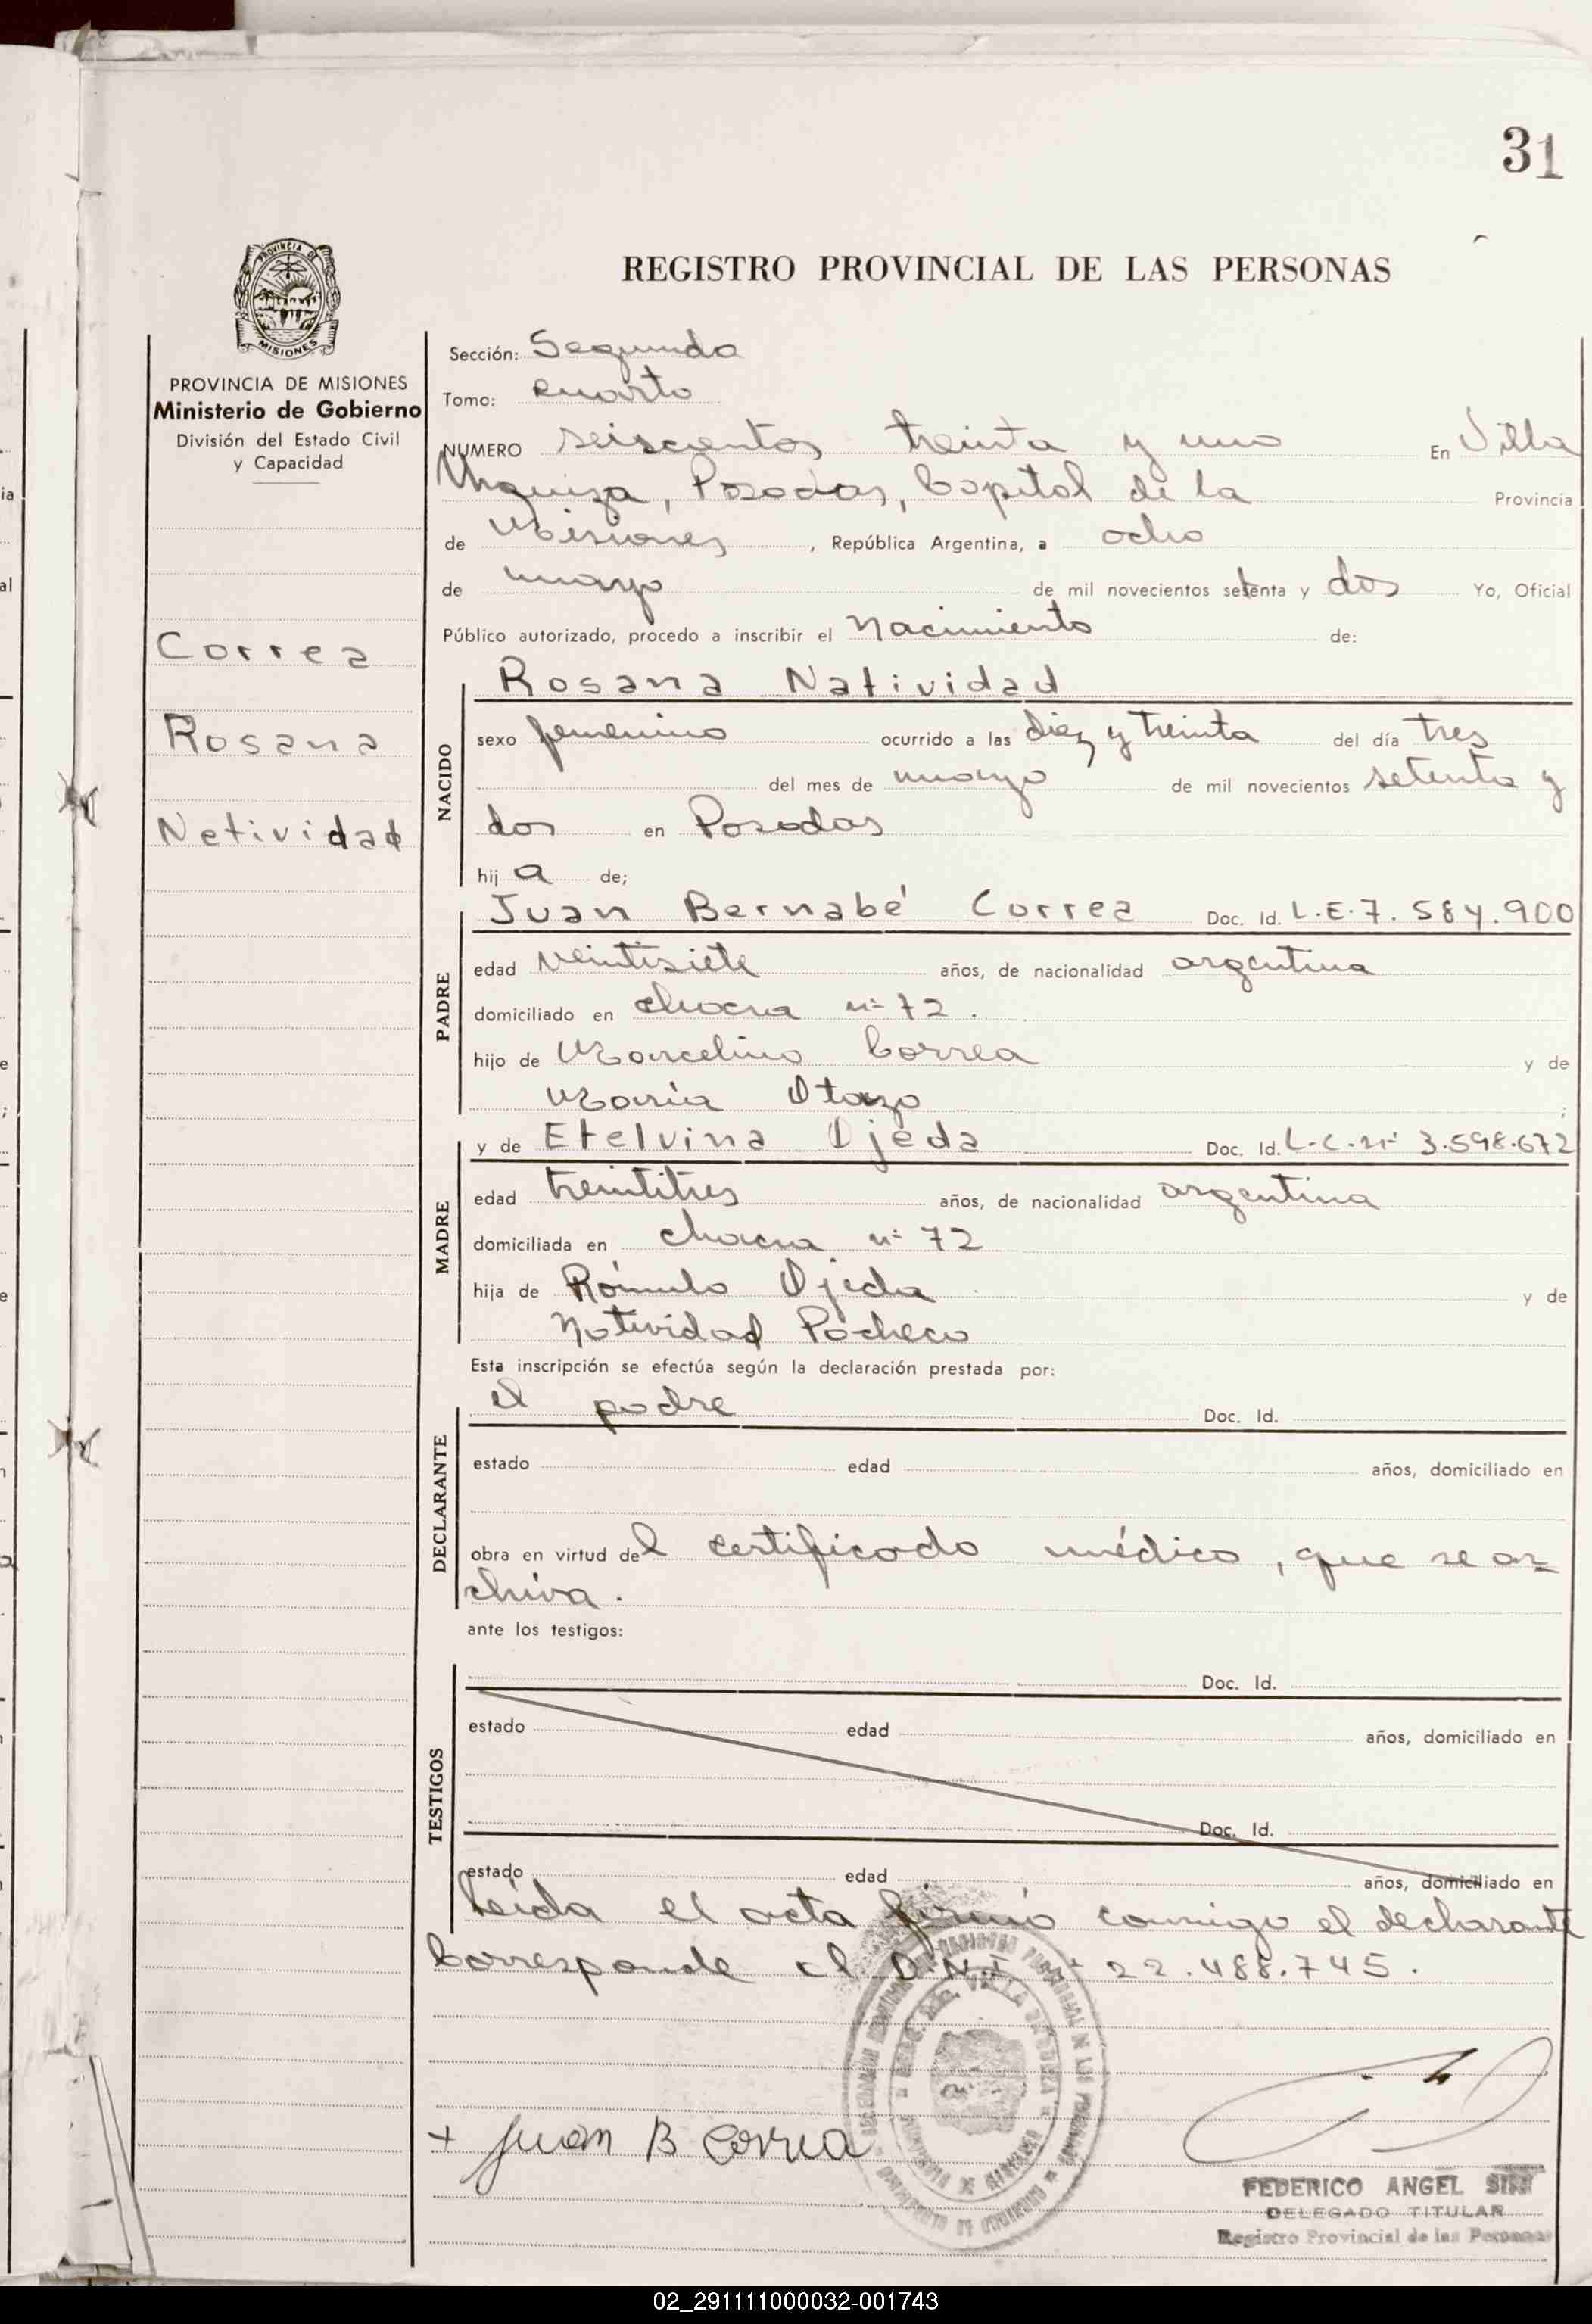 31
PROVINCIA DE
MISIONES
REGISTRO PROVINCIAL DE LAS PERSONAS
PROVINCIA DE MISIONES
Ministerio de Gobierno
División del Estado Civil
y Capacidad
Correa
Rosana
Natividad
Sección: Segunda
Tomo: cuarto
NUMERO seiscientos treinta y uno En Villa
Urquiza, Posadas, Capital de la Provincia
de Misiones, República Argentina, a ocho
de mayo de mil novecientos setenta y dos Yo, Oficial
Público autorizado, procedo a inscribir el Nacimiento de:
NACIDO
Rosana Natividad
sexo femenino ocurrido a las diez y treinta del día tres
del mes de mayo de mil novecientos setenta y
dos en Posadas
hija de;
PADRE
Juan Bernabé Correa Doc. Id. L.E. 7.584.900
edad veintisiete años, de nacionalidad argentina
domiciliado en chacra nº 72.
hijo de Marcelino Correa y de
María Otazo ;
MADRE
y de Etelvina Ojeda Doc. Id. L.C. nº 3.598.672
edad treintitres años, de nacionalidad argentina
domiciliada en chacra nº 72
hija de Rómulo Ojeda y de
Natividad Pacheco
Esta inscripción se efectúa según la declaración prestada por:
DECLARANTE
el padre Doc. Id.
estado edad años, domiciliado en
obra en virtud del certificado médico, que se ar=
chiva.
ante los testigos:
TESTIGOS
Doc. Id.
estado edad años, domiciliado en
Doc. Id.
estado edad años, domiciliado en
Leída el acta firmó conmigo el declarante
Corresponde el D.N.I. nº 22.488.745.
+ Juan B Correa
FEDERICO ANGEL
DELEGADO TITULAR
Registro Provincial de las Personas
02_291111000032-001743